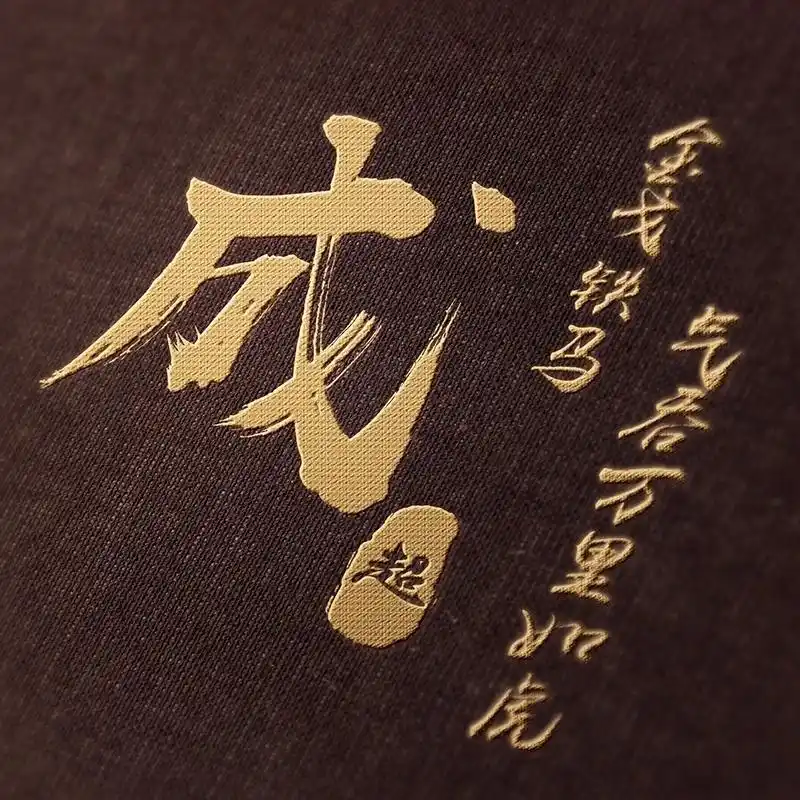 成
超
金戈铁马
气吞万里如虎